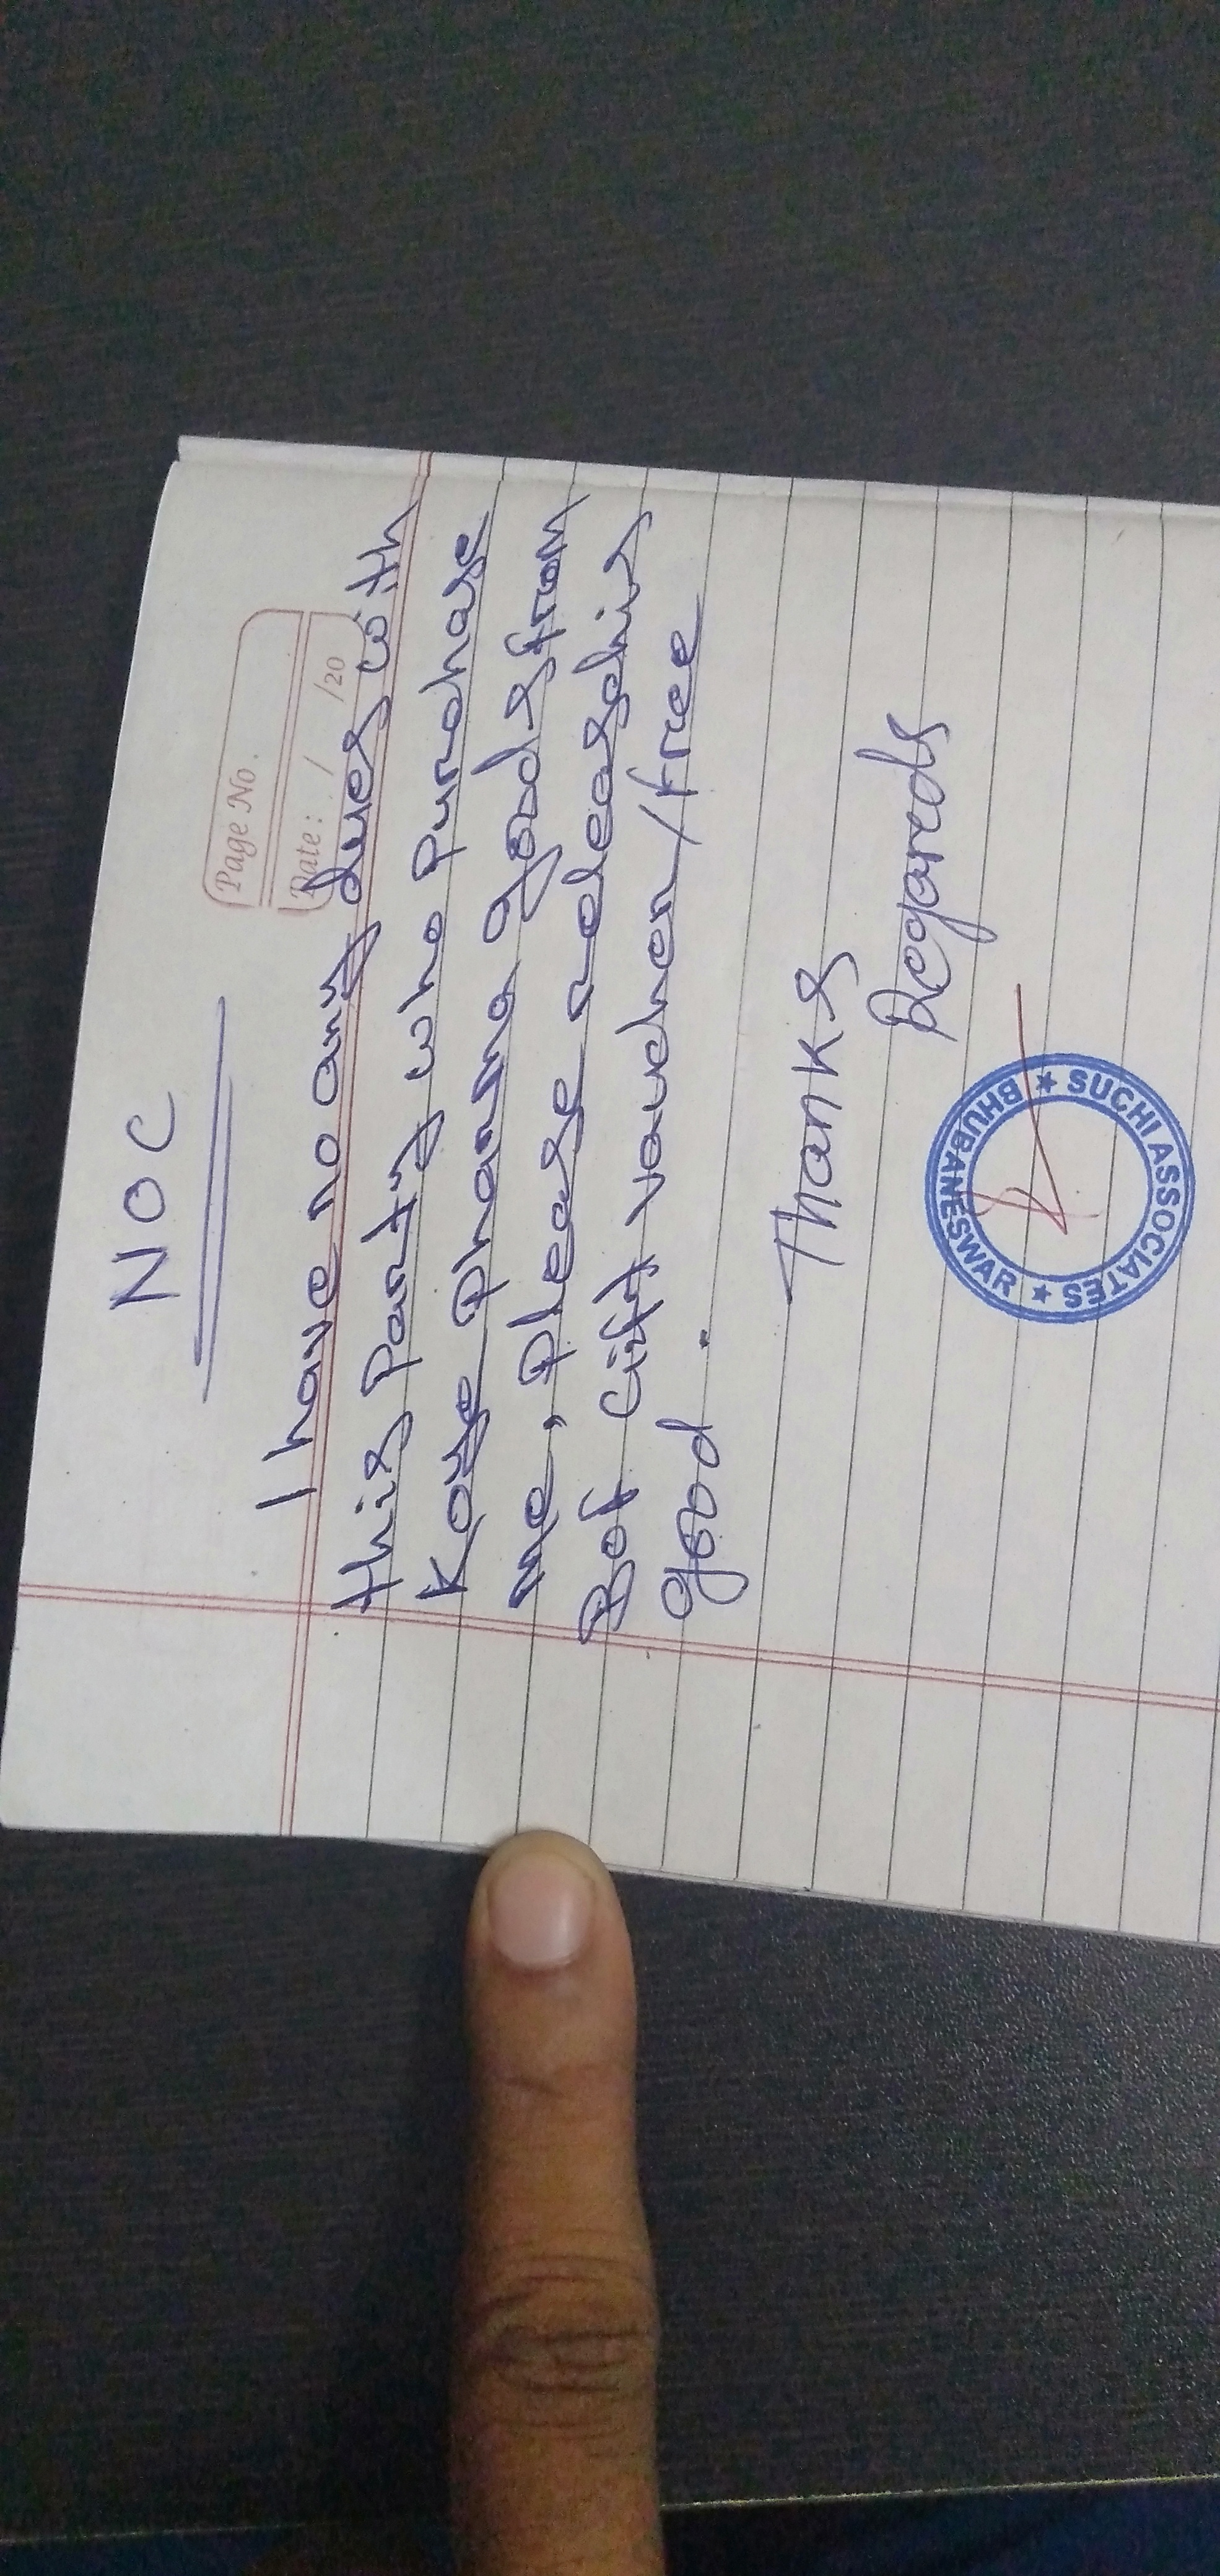 NOC
Page No.
Date: / /20
I have no any dues with
this Party who Purchase
Kaye Pharma goods from
me, Please
Bof Gift voucher/free
good.
Thanks
Regareds
★ SUCHI ASSOCIATES ★ BHUBANESWAR